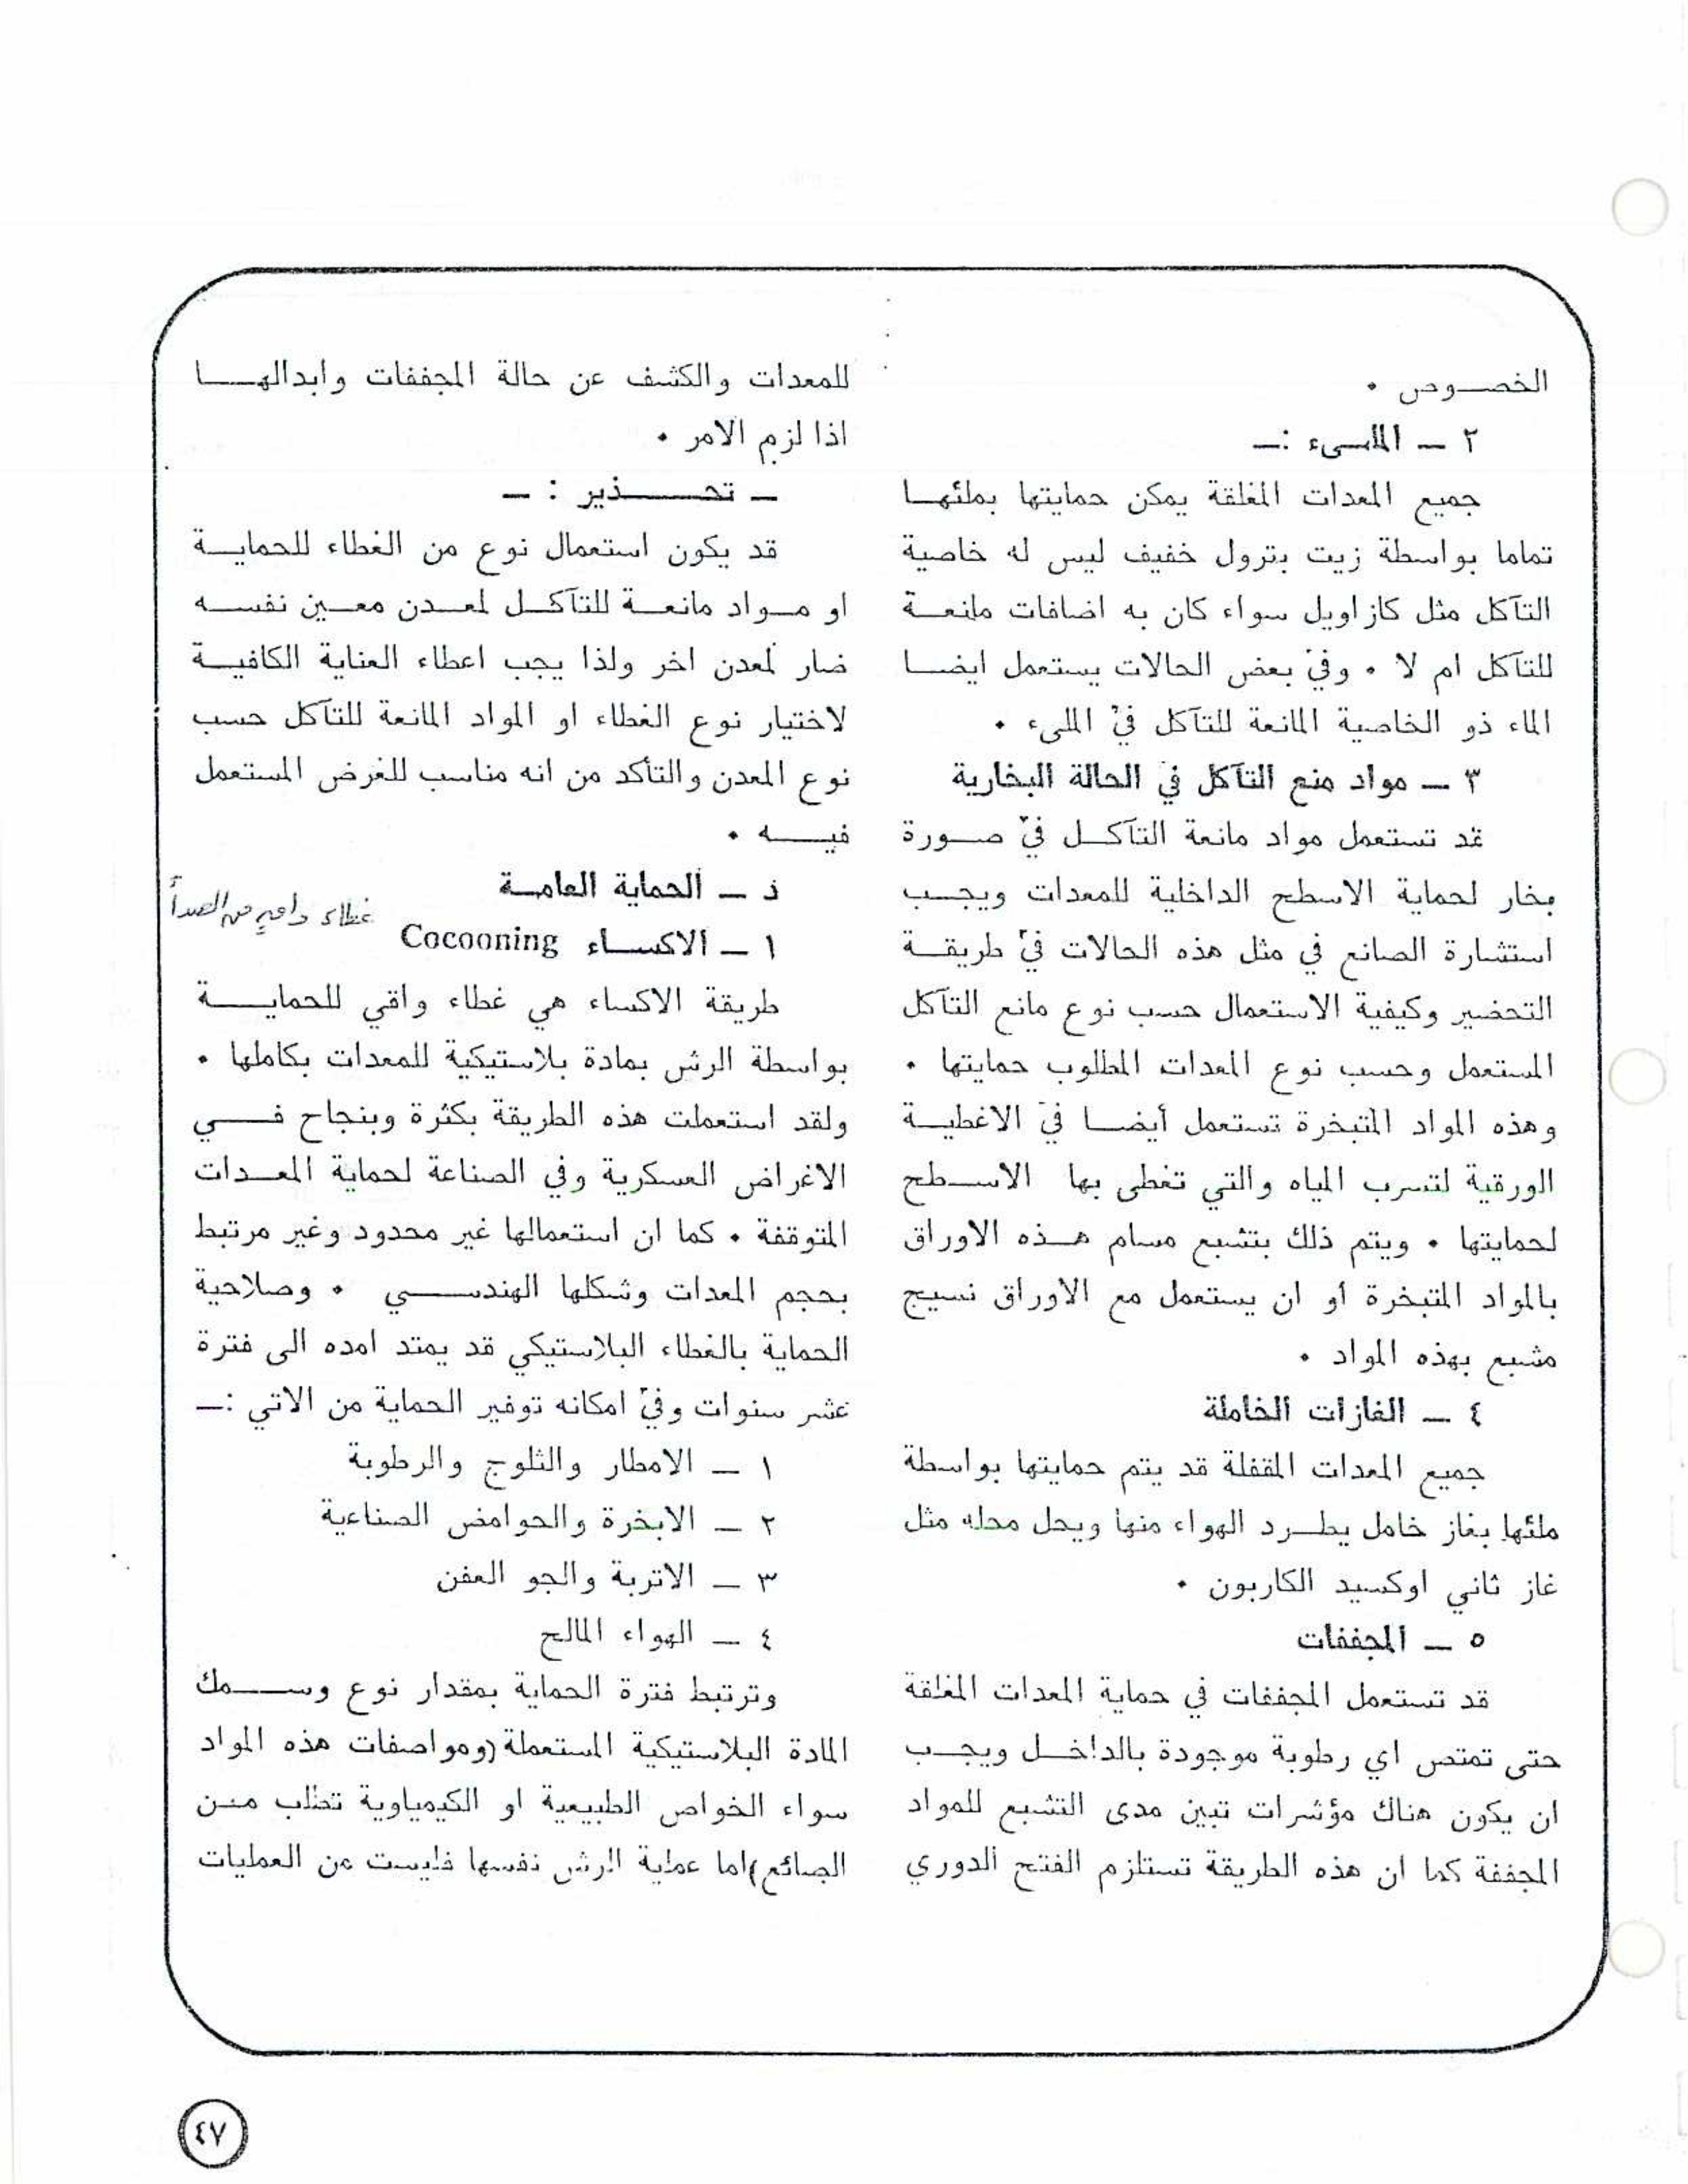 الخصـوص ٠
٢ ـ الملـىء :ـ
جميع المعدات المغلقة يمكن حمايتها بملئهـا
تماما بواسطة زيت بترول خفيف ليس له خاصية
التآكل مثل كازاويل سواء كان به اضافات مانعـة
للتآكل ام لا ٠ وفي بعض الحالات يستعمل ايضـا
الماء ذو الخاصية المانعة للتآكل في الملىء ٠
٣ ـ مواد منع التآكل في الحالة البخارية
قد تستعمل مواد مانعة التآكـل في صـورة
بخار لحماية الاسطح الداخلية للمعدات ويجـب
استشارة الصانع في مثل هذه الحالات في طريقـة
التحضير وكيفية الاستعمال حسب نوع مانع التآكل
المستعمل وحسب نوع المعدات المطلوب حمايتها ٠
وهذه المواد المتبخرة تستعمل أيضـا في الاغطيـة
الورقية لتسرب المياه والتي تغطى بها الاسـطح
لحمايتها ٠ ويتم ذلك بتشبع مسام هـذه الاوراق
بالمواد المتبخرة أو ان يستعمل مع الاوراق نسيج
مشبع بهذه المواد ٠
٤ ـ الغازات الخاملة
جميع المعدات المقفلة قد يتم حمايتها بواسطة
ملئها بغاز خامل يطـرد الهواء منها ويحل محله مثل
غاز ثاني اوكسيد الكاربون ٠
٥ ـ المجففات
قد تستعمل المجففات في حماية المعدات المغلقة
حتى تمتص اي رطوبة موجودة بالداخـل ويجـب
ان يكون هناك مؤشرات تبين مدى التشبع للمواد
المجففة كما ان هذه الطريقة تستلزم الفتح الدوري
للمعدات والكشف عن حالة المجففات وابدالهـا
اذا لزم الامر ٠
ـ تحــذير : ـ
قد يكون استعمال نوع من الغطاء للحمايـة
او مـواد مانعـة للتآكـل لمعـدن معـين نفسـه
ضار لمعدن اخر ولذا يجب اعطاء العناية الكافيـة
لاختيار نوع الغطاء او المواد المانعة للتآكل حسب
نوع المعدن والتأكد من انه مناسب للغرض المستعمل
فيـــه ٠
ذ ـ الحماية العامـة
غطاء واقٍ من الصدأ
١ ـ الاكسـاء Cocooning
طريقة الاكساء هي غطاء واقي للحمايـــة
بواسطة الرش بمادة بلاستيكية للمعدات بكاملها ٠
ولقد استعملت هذه الطريقة بكثرة وبنجاح فـــي
الاغراض العسكرية وفي الصناعة لحماية المعـدات
المتوقفة ٠ كما ان استعمالها غير محدود وغير مرتبط
بحجم المعدات وشكلها الهندســـي ٠ وصلاحية
الحماية بالغطاء البلاستيكي قد يمتد امده الى فترة
عشر سنوات وفي امكانه توفير الحماية من الاتي :ـ
١ ـ الامطار والثلوج والرطوبة
٢ ـ الابخرة والحوامض الصناعية
٣ ـ الاتربة والجو العفن
٤ ـ الهواء المالح
وترتبط فترة الحماية بمقدار نوع وســـمك
المادة البلاستيكية المستعملة (ومواصفات هذه المواد
سواء الخواص الطبيعية او الكيمياوية تطلب مـن
الصائع) اما عملية الرش نفسها فليست من العمليات
٤٧